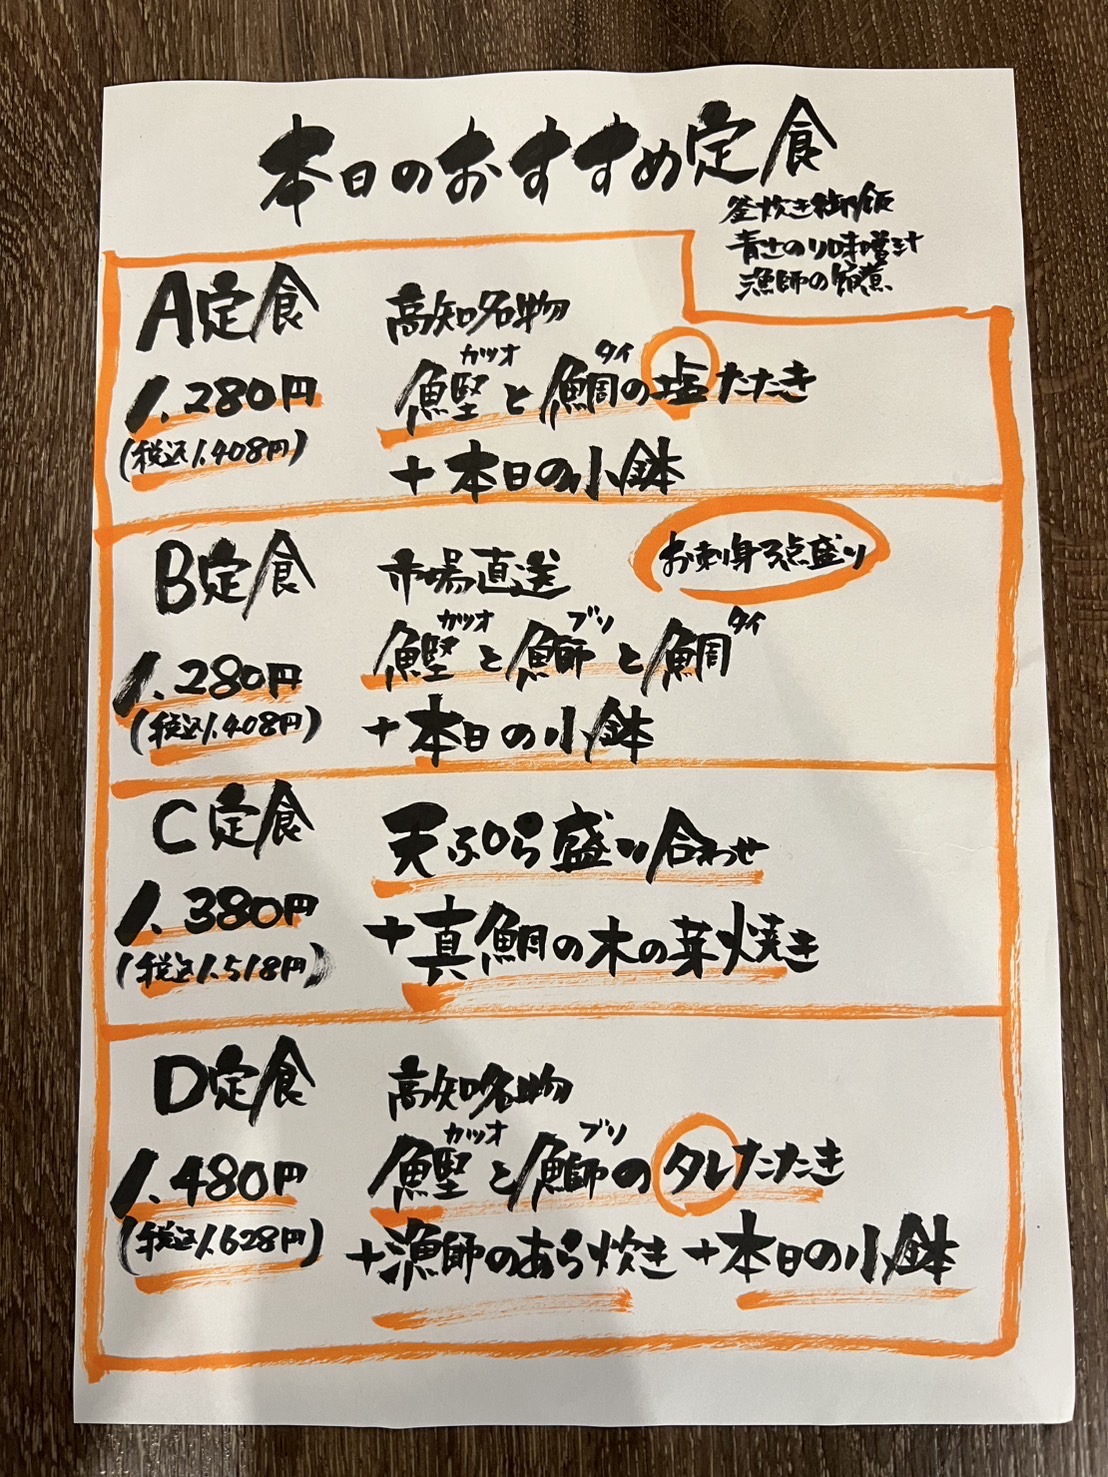 本日のおすすめ定食
釜炊き御飯
青さのり味噌汁
漁師の宿煮
A定食
1.280円
(税込1.408円)
高知名物
カツオ タイ
鰹と鯛の塩たたき
+本日の小鉢
B定食
1.280円
(税込1.408円)
市場直送
お刺身3点盛り
カツオ ブリ タイ
鰹と鰤と鯛
+本日の小鉢
C定食
1.380円
(税込1.518円)
天ぷら盛り合わせ
+真鯛の木の芽焼き
D定食
1.480円
(税込1.628円)
高知名物
カツオ ブリ
鰹と鰤のタレたたき
+漁師のあら炊き+本日の小鉢